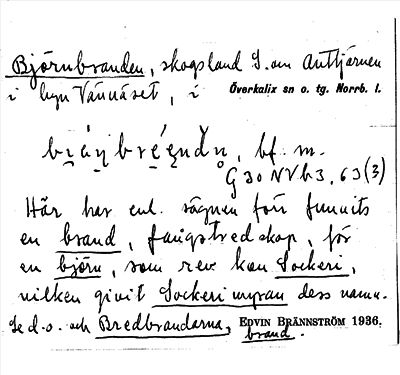 Björnbranden, skogsland S. om Anttjärnen
i byn Vännäset, i Överkalix sn o. tg. Norrb. l.
bf. m.
G 30 NVb3, 63 (3)
Här har enl. sägnen förr funnits
en brand, fångstredskap, för
en björn, som rev kon Sockeri,
vilken givit Sockerimyran dess namn.
Se d. o. och Bredbrandarna, EDVIN BRÄNNSTRÖM 1936.
brand.